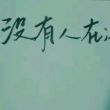 没有人在